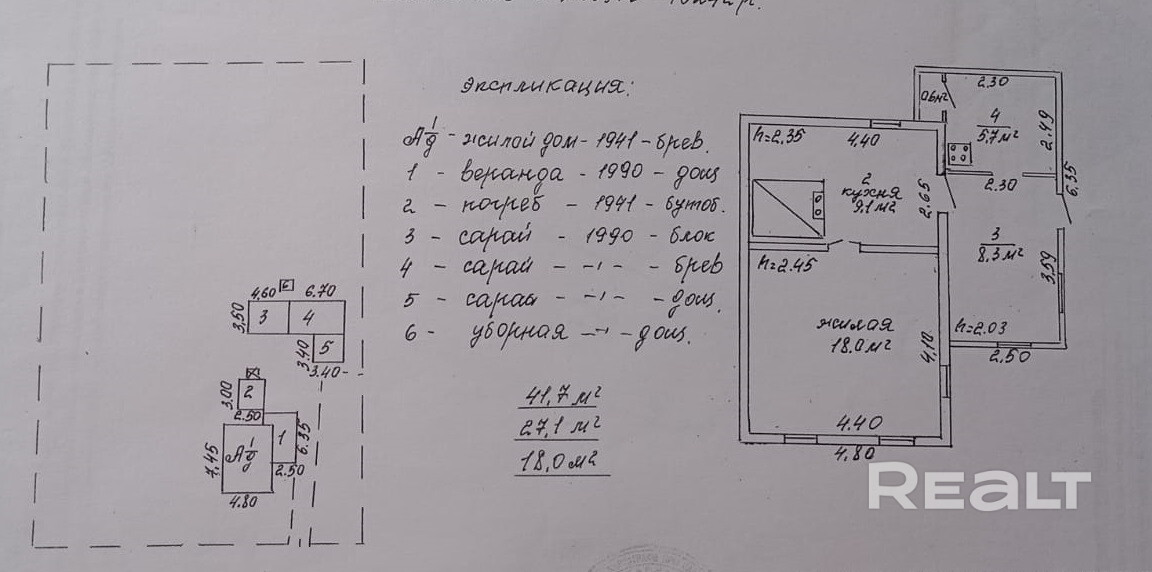 экспликация:
А 1/д - жилой дом - 1941 - брев.
1 - веранда - 1990 - дощ
2 - погреб - 1941 - бутоб.
3 - сарай - 1990 - блок
4 - сарай - -"- - брев
5 - сарай - -"- - дощ.
6 - уборная -"- дощ.
41,7 м²
27,1 м²
18,0 м²
4.60
6
6.70
3.50
3
4
3.40
5
3.40
3.00
2
2.50
7.45
А 1/д
1
6.35
2.50
4.80
0.6 м²
2.30
4
5.7 м²
2.49
h=2.35
4.40
2
кухня
9,1 м²
2.65
2.30
6.35
3
8.3 м²
3.59
h=2.45
жилая
18.0 м²
4.10
h=2.03
2.50
4.40
4.80
REALT